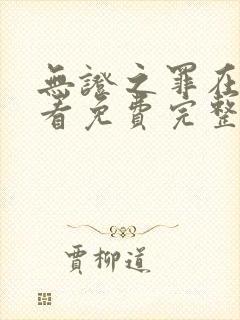 無證之罪在
看免費完整
賈柳道